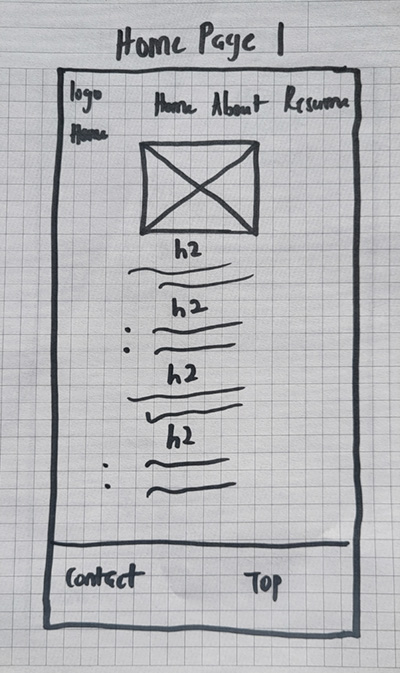 Home Page 1
logo
Home About Resume
Home
h2
h2
h2
h2
Contact Top